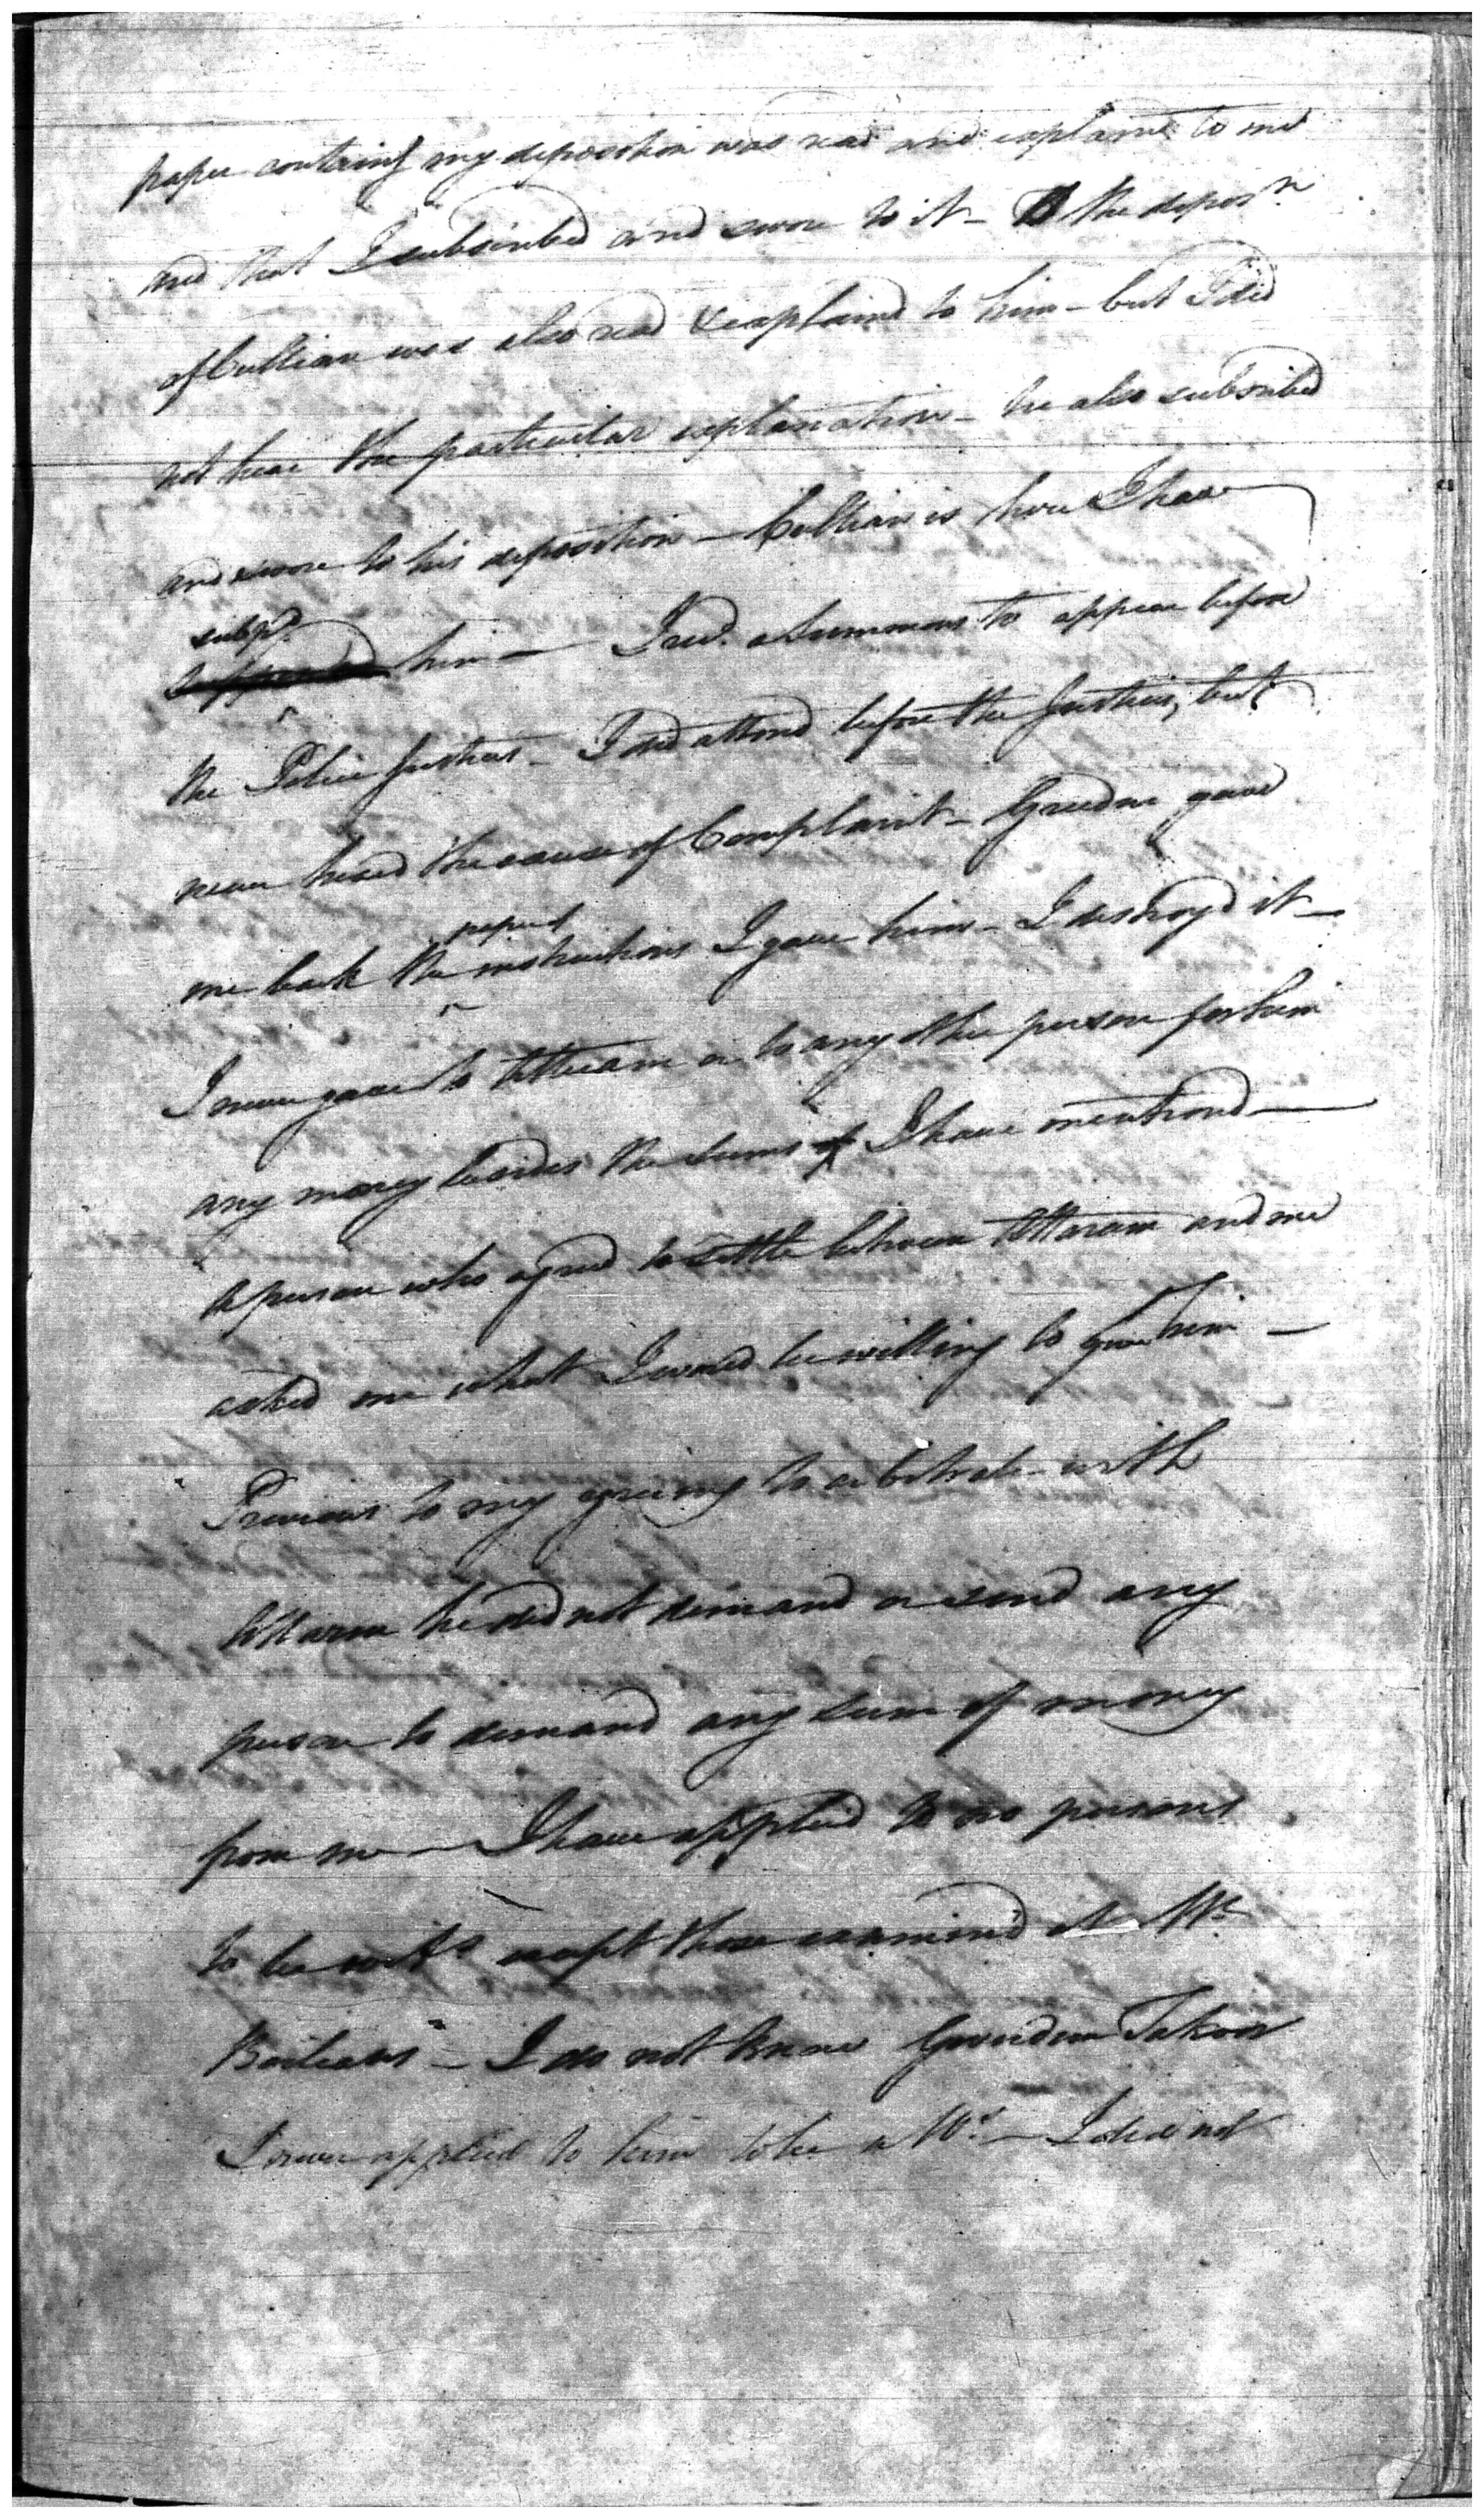 paper containg my deposition was read and explaind to me
and that I subscribed and swore to it - the depos.n
of Cullian was also read & explaind to him - but I did
not hear the particular explanation - he also subscribed
and swore to his deposition - Cullian is here I have
subp.d
him - I recd. a Summons to appear before
the Police Justices - I did attend before the Justices, but
never heard the cause of Complaint - gave
me back the instructions I gave him - I destroyd it -
I never gave to or to any other person for him
any money besides the sums I have mentiond -
A person who agreed to settle between Uttaram and me
asked me what I would be willing to give him -
Previous to my agreeing to arbitrate with
Uttaram he did not demand or send any
person to demand any sum of money
from me - I have applied to no persons
to be except those examined at Mr.
- I do not know
I never applied to him to be a W.s - I did not